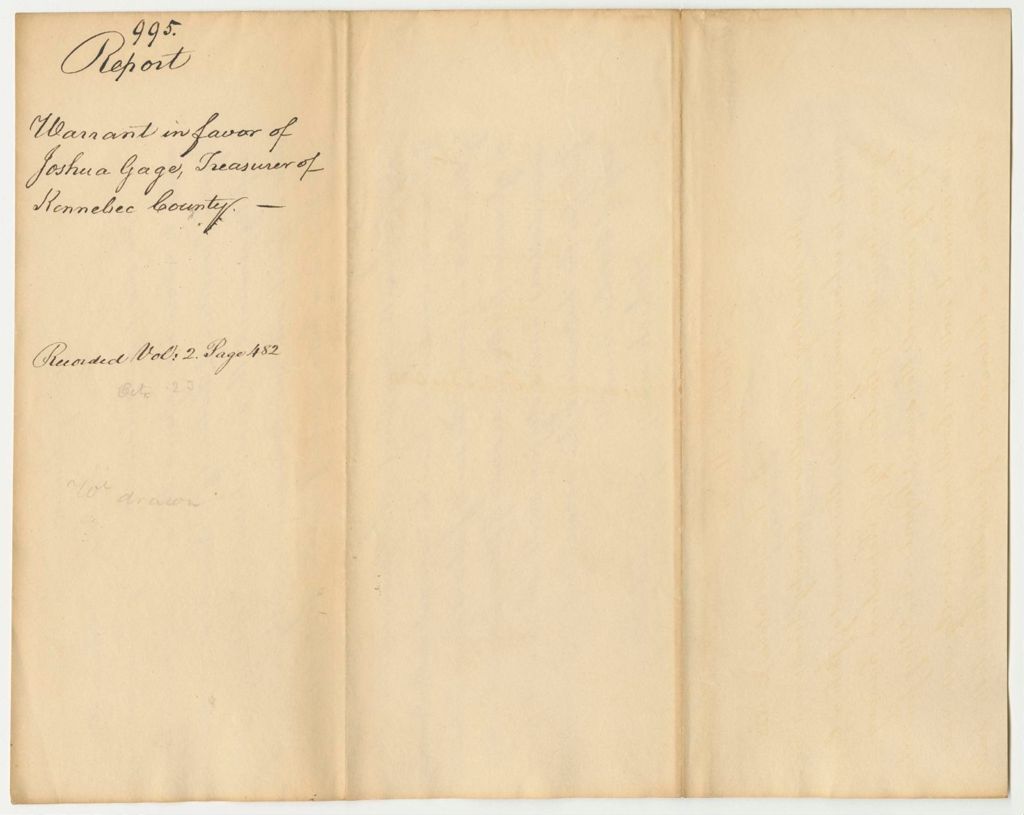 995.
Report
Warrant in favor of
Joshua Gage, Treasurer of
Kennebec County. —
Recorded Vol: 2. Page 482
Octr 23
Wt drawn